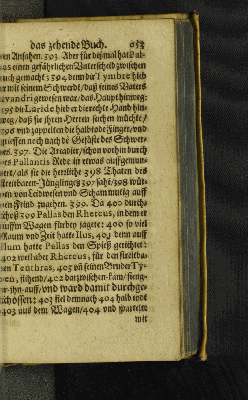 das zehende Buch. 953
en Ansahen. 393. Aber für dismal hat Pal-
as einen gefährlichen Unterscheid zwischen
uch gemacht: 394 denn dir Tymbre hieb
er mit seinem Schwerdt/ daß seines Vaters
vandri gewesen war/ das Haupt hinweg:
395 die Laride hieb er die rechte Hand hin-
weg/ daß sie ihren Herren suchen müchte/
396 und zappelten die halbtode Finger/ und
griessen noch nach de Gefäße des Schwer-
es. 397. Die Arcadier/ schon vorhin durch
es Pallantis Rede in etwas auffgemun-
ert/ als sie die herzliche 398 Thaten des
streitbaren-Jünglings 397 sahē/ 398 wür-
en von Leidwesen und Scham muttig auff
en Feind zugehen. 399. Da 400 durch-
schoß 399 Pallas den Rheteus, in dem er
uffm Wagen fürüber jagete: 400 so viel
Raum und Zeit hatte Ilus, 401 denn auff
Ilum hatte Pallas den Spieß gerichtet:
402 weil aber Rheteus, für den streitba-
en Teuthras, 403 uñ seinen Bruder Ty-
en, fliehend/ 402 darzwischen-kam/ fieng-
er-ihn-auff/ und ward damit durchge-
schossen: 403 fiel demnach 404 halb todt
403 aus dem Wagen/ 404 und zwartzelte
mit